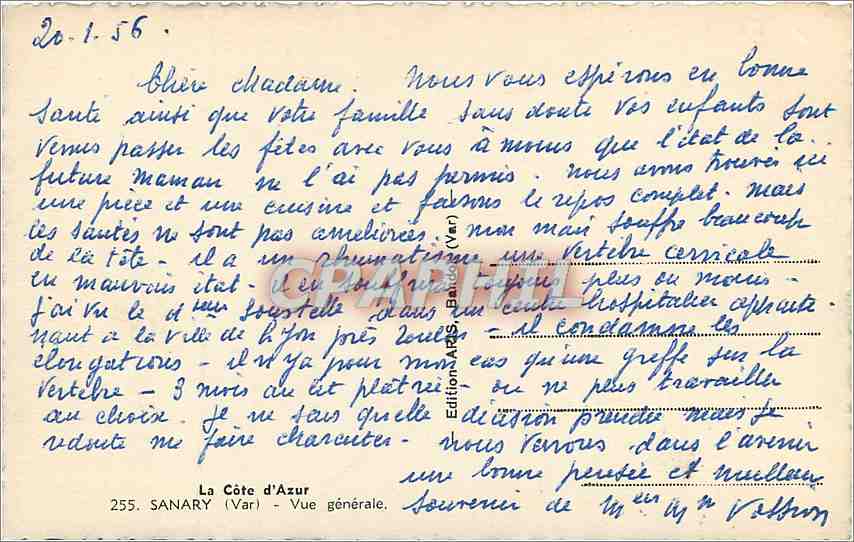 20.1.56.
Chère Madame. Nous vous espérons en bonne
santé ainsi que votre famille sans doute vos enfants sont
venus passer les fêtes avec vous à moins que l'état de la
future maman ne l'ai pas permis. nous avons trouvés ici
une pièce et une cuisine et faisons le repos complet. mais
les santés ne sont pas améliorées. mon mari souffre beaucoup
de la tête - il a un rhumatisme une vertèbre cervicale
en mauvais état - il en souffrira toujours plus ou moins -
j'ai vu le d Soustelle dans un centre hospitalier apparte-
nant a la ville de Lyon près Toulon - il condamne les
élongations - il n'y a pour mon cas qu'une greffe sur la
vertèbre - 3 mois au lit plâtrée - ou ne plus travailler
au choix. Je ne sais quelle décision prendre mais je
redoute me faire charcuter - nous verrons dans l'avenir
une bonne pensée et meilleur
souvenir de Mr
La Côte d'Azur
255. SANARY (Var) - Vue générale.
Edition ARIS, Bandol (Var)
CPAPHIL